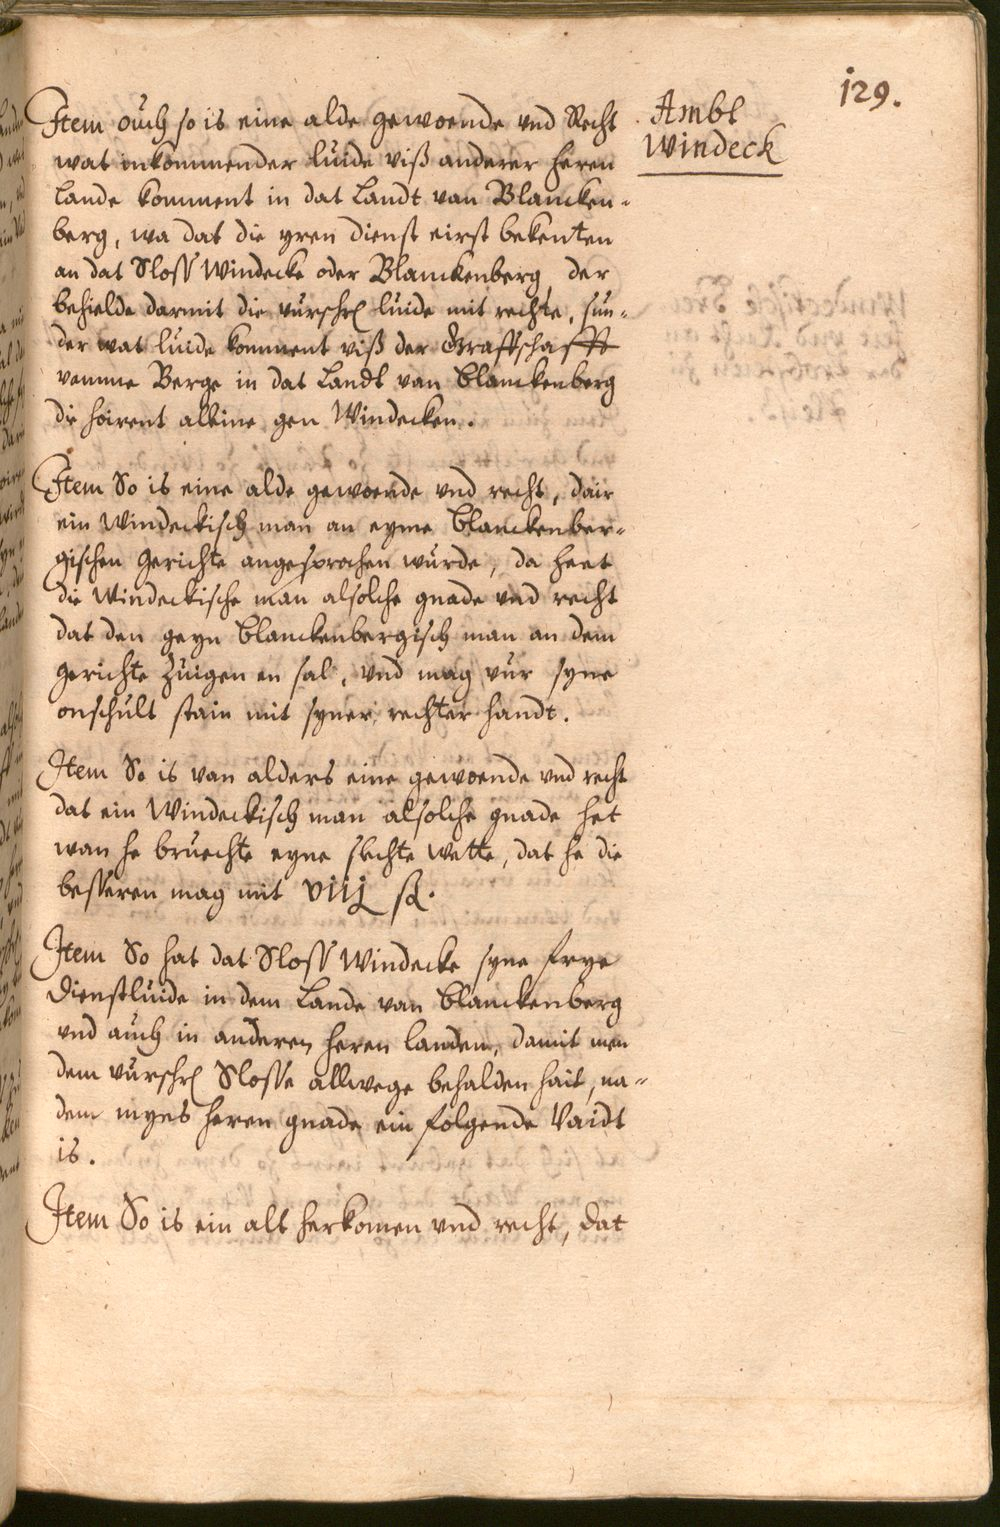 129.
Ambt
Windeck
Item ouch so is eine alde gewoende vnd Recht
wat inkommender luide viß anderer heren
lande komment in dat Landt van Blancken-
berg, wa dat die yren dienst eirst bekenten
an dat Sloss Windecke oder Blanckenberg, der
behielde darmit die vurschr luide mit rechte, sun-
der wat luide komment viß der Graffschafft
vamme Berge in dat Landt van Blanckenberg
die hoirent alleine gen Windecken.
Item So is eine alde gewoende vnd recht, dair
ein Windeckisch man an eyme Blanckenber-
gischen gerichte angesprochen wurde, da heet
die Windeckische man alsolche gnade vnd recht
dat den geyn Blanckenbergisch man an dem
gerichte Zuigen en sal, vnd mag vur syne
onschult stain mit syner rechter handt.
Item So is van alders eine gewoende vnd recht
dat ein Windeckisch man alsolche gnade het
wan he bruechte eyne slechte Wette, dat he die
besseren mag mit viij ß.
Item So hat dat Sloss Windecke syne frye
Dienstluide in dem Lande van Blanckenberg
vnd auch in anderen heren landen, damit men
dem vurschr Slosse allwege behalden hait, na-
dem myns heren gnade ein folgende Vaidt
is.
Item So is ein alt herkomen vnd recht, dat